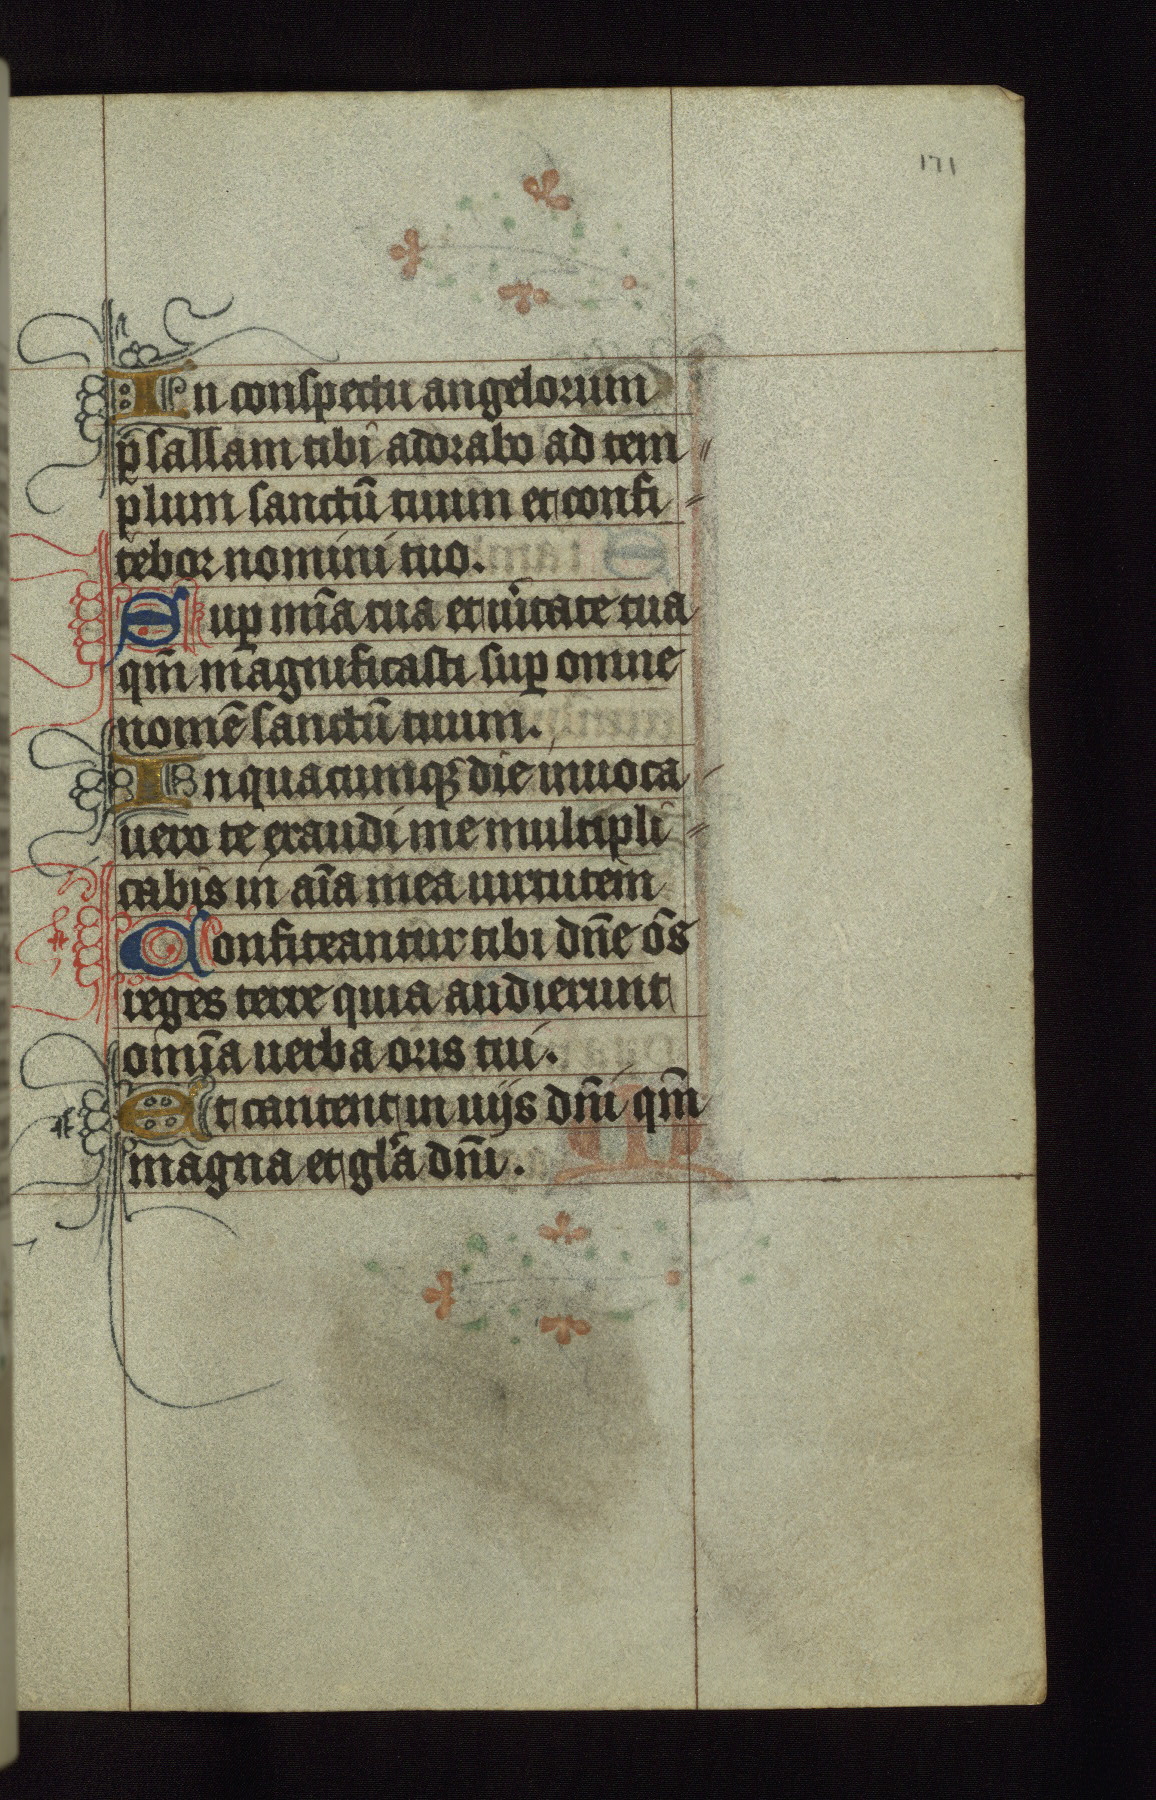 171
In conspectu angelorum
psallam tibi adorabo ad tem
plum sanctū tuum et confi
tebor nomini tuo.
Sup mīa tua et ùitate tua
qm̄ magnificasti sup omne
nomē sanctū tuum.
In quacumqꝫ die inuoca
uero te exaudi me multipli
cabis in aīa mea uirtutem
Confiteantur tibi dn̄e ōs
reges terre quia audierunt
omīa uerba oris tui.
Et cantent in uijs dn̄i qm̄
magna et gľa dn̄i.